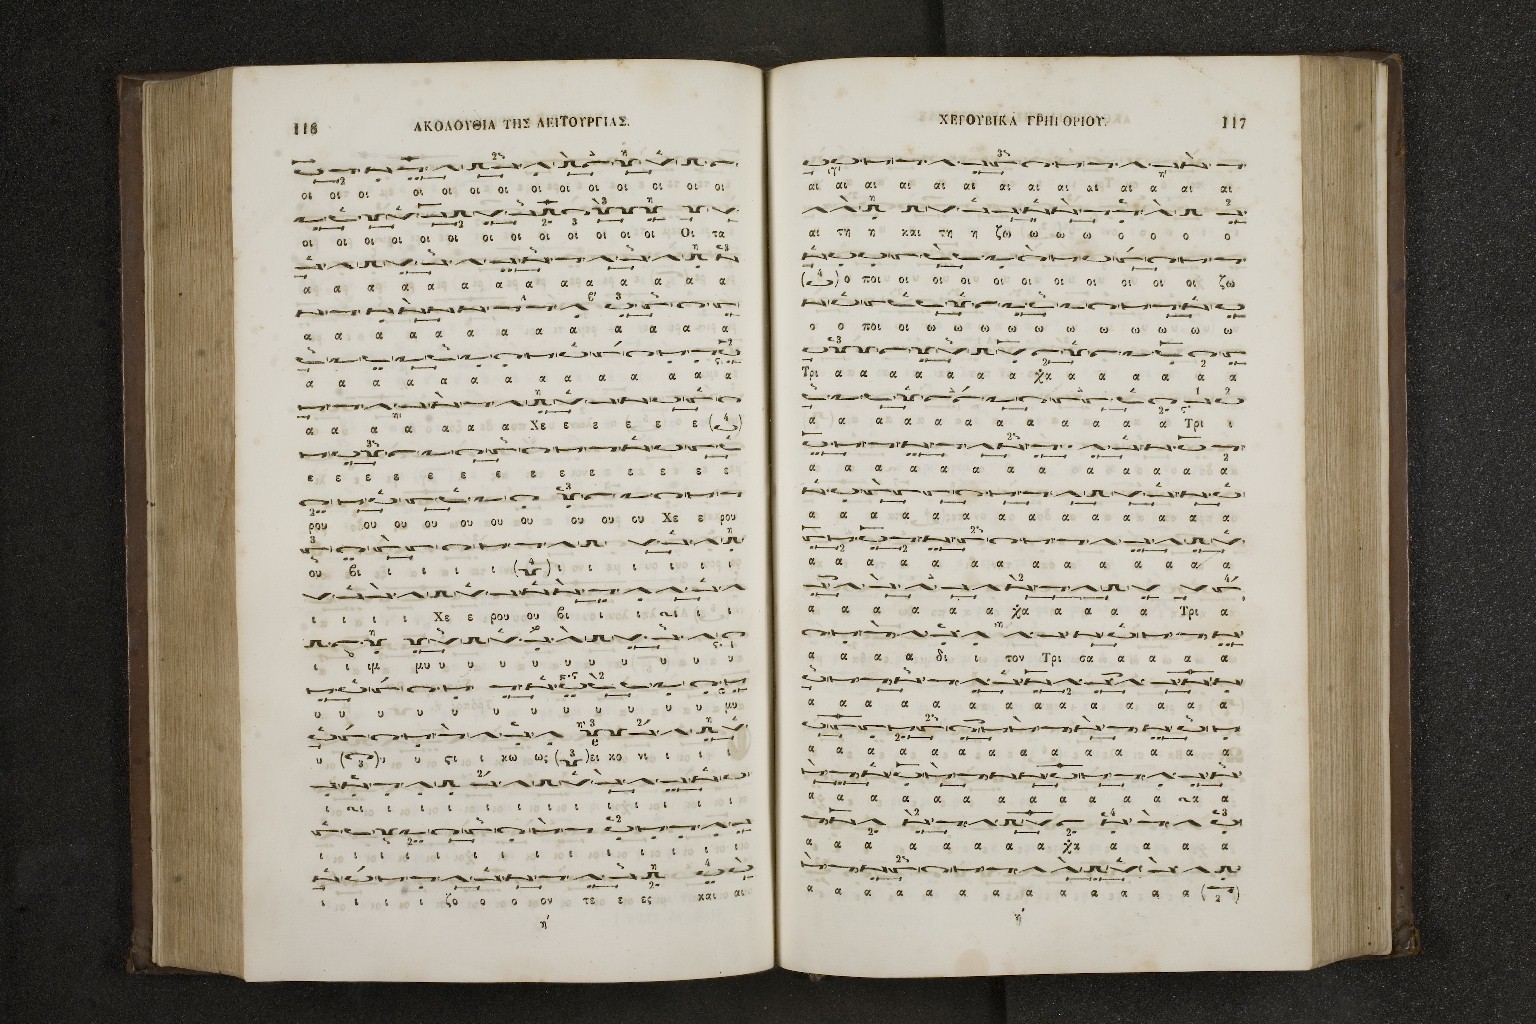 118 ΑΚΟΛΟΥΘΙΑ ΤΗΣ ΛΕΙΤΟΥΡΓΙΑΣ.
οι οι οι οι οι οι οι οι οι οι οι οι οι οι
οι οι οι οι οι οι οι οι οι οι οι οι οι Οι τα
α α α α α α α α α α α α α α
α α α α α α α α α α α α α
α α α α α α α α α α α α α
α α α α α α α Χε ε ε ε ε ε ε
ε ε ε ε ε ε ε ε ε ε ε ε ε
ρου ου ου ου ου ου ου ου ου ου Χε ε ρου
ου βι ι ι ι ι ι ι ι ι ι ι
ι ι ι ι Χε ε ρου ου βι ι ι ι ι ι
ι ι ιμ μυ υ υ υ υ υ υ υ υ υ υ
υ υ υ υ υ υ υ υ υ υ υ υ μυ
υ υ υ ςι ι κω ως ει κο νι ι ι ι
ι ι ι ι ι ι ι ι ι ι ι ι ι
ι ι ι ι ι ι ι ι ι ι ι ι ι ι
ι ι ι ι ι ζο ο ο ον τε ε ες και αι
η'
ΧΕΡΟΥΒΙΚΑ ΓΡΗΓΟΡΙΟΥ. 117
αι αι αι αι αι αι αι αι αι αι αι α αι αι
αι τη η και τη η ζω ω ω ω ο ο ο ο
ο ποι οι οι οι οι οι οι οι οι οι οι ζω
ο ο ποι οι ω ω ω ω ω ω ω ω ω ω
Τρι α α α α α α α χα α α α α α α
α α α α α α α α α α α α Τρι ι
α α α α α α α α α α α α α
α α α α α α α α α α α α α α
α α α α α α α α α α α α α α
α α α α α α χα α α α α Τρι α
α α α α δι ι τον Τρι σα α α α α
α α α α α α α α α α α α α α
α α α α α α α α α α α α α α
α α α α α α α α α α α α α α
α α α α α α α α χα α α α α
α α α α α α α α α α α α α
η'